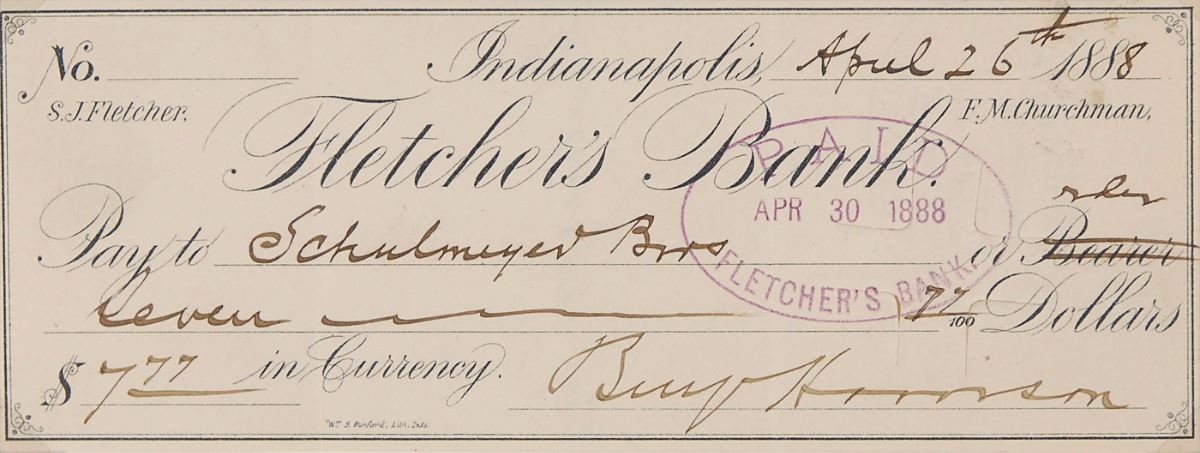 No. Indianapolis, April 26th 1888
S.J. Fletcher. F.M. Churchman,
Fletcher's Bank.
PAID
APR 30 1888
FLETCHER'S BANK.
order
Pay to Schulmeyer Bros or Bearer
Seven 77/100 Dollars
$ 7 77 in Currency. Benj Harrison
Wm B. Burford, Lith. Inds.